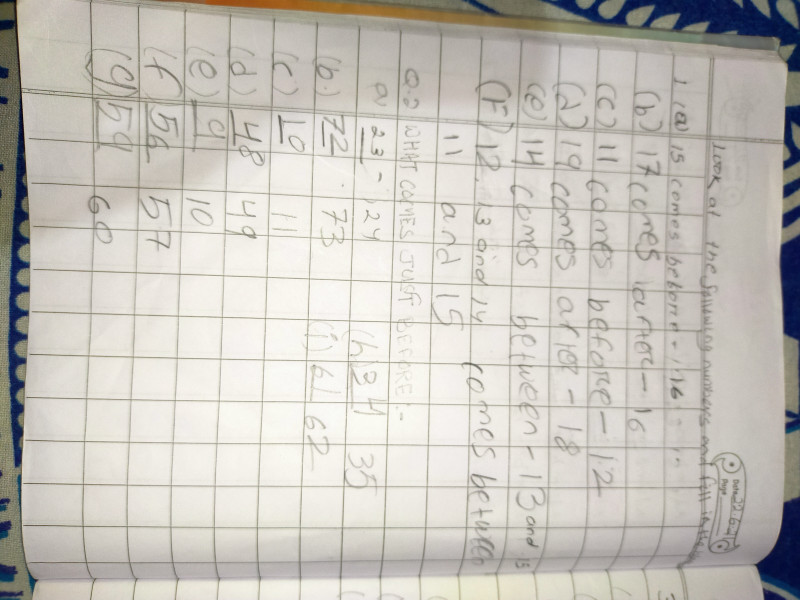 Look at the following numbers and fill in the
1 (a) 15 comes before - 16
(b) 17 comes after - 16
(c) 11 comes before - 12
(d) 19 comes after - 18
(e) 14 comes between - 13 and 15
(F) 12, 13 and 14 comes between
11 and 15
Q.2 WHAT COMES JUST BEFORE:-
a) 23 - 24 (h) 34 35
(b) 72 73 (i) 61 62
(c) 10 11
(d) 48 49
(e) 9 10
(f) 56 57
(g) 59 60